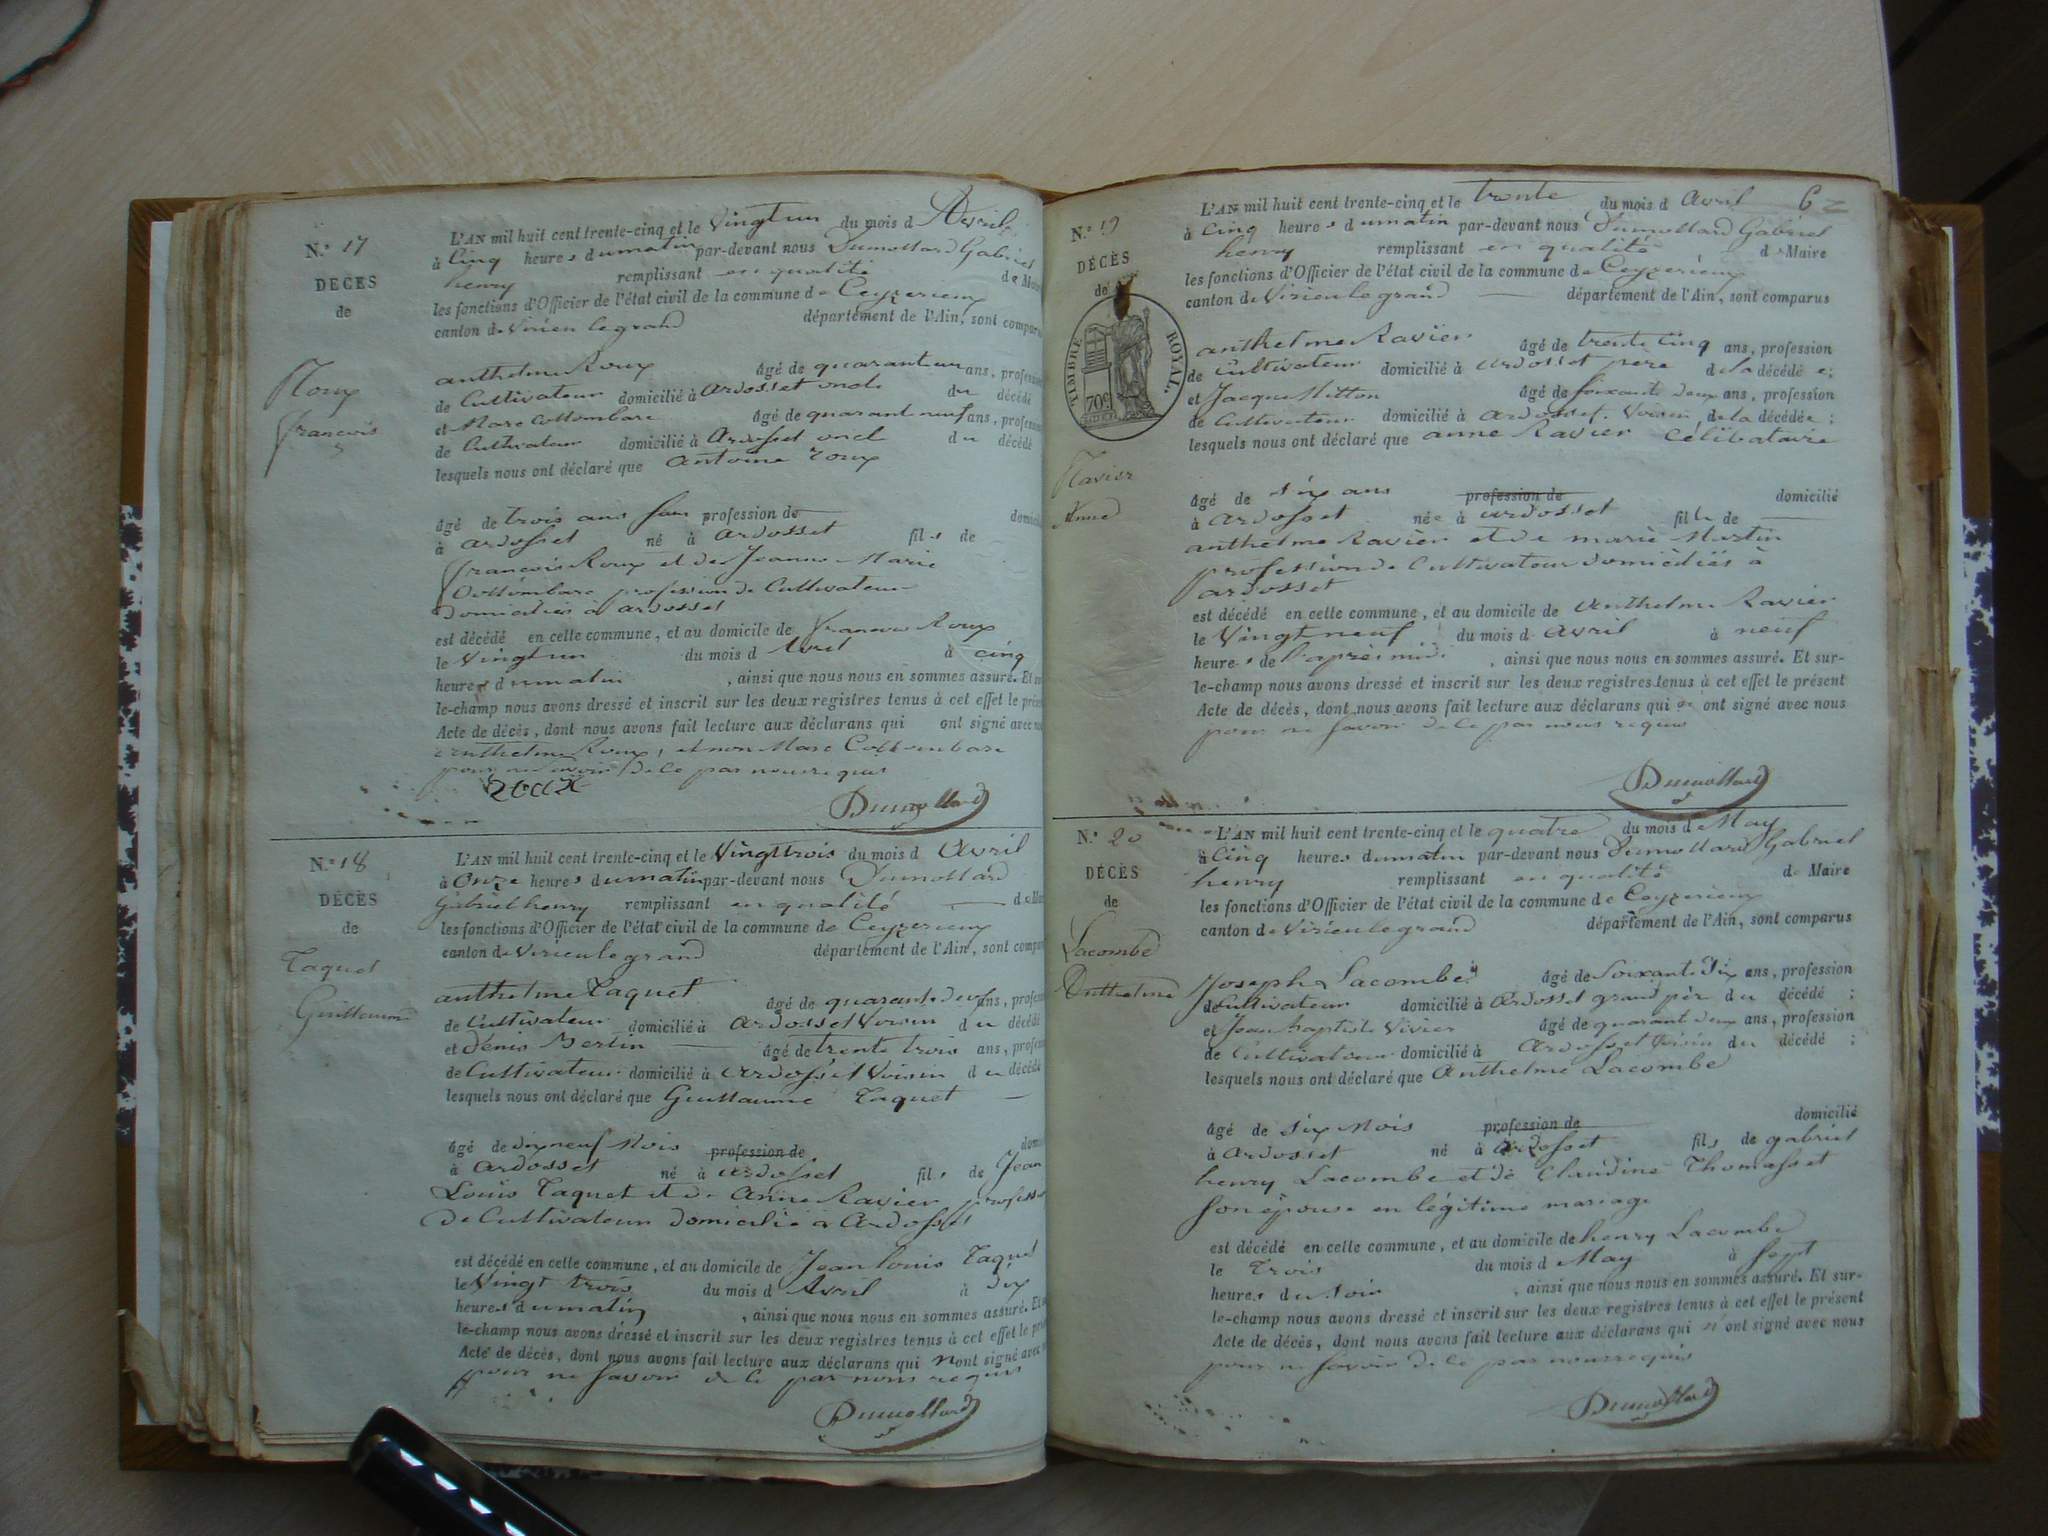 N.° 17
DÉCÈS
de
Roux
françois
L'AN mil huit cent trente-cinq et le Vingt un du mois d Avril
à Cinq heures du matin par-devant nous Dumollard Gabriel
henry remplissant en qualité de Maire
les fonctions d'Officier de l'état civil de la commune de Ceyzerieux
canton de Virieu le grand département de l'Ain, sont comparus
anthelme Roux âgé de quarante un ans, profession
de Cultivateur domicilié à Ardosset oncle du décédé
et Marc Collombare âgé de quarant neuf ans, profession
de Cultivateur domicilié à Ardosset oncle du décédé
lesquels nous ont déclaré que Antoine roux
âgé de trois ans sans profession de domicilié
à ardosset né à ardosset fils de
françois Roux et de Jeanne Marie
Collombare profession de Cultivateur
Domiciliés à ardosset
est décédé en cette commune, et au domicile de françois Roux
le Vingt un du mois d Avril à cinq
heures du matin , ainsi que nous nous en sommes assuré. Et sur-
le-champ nous avons dressé et inscrit sur les deux registres tenus à cet effet le présent
Acte de décès, dont nous avons fait lecture aux déclarans qui ont signé avec nous
anthelme Roux, et non Marc Collombare
pour ne savoir de ce par nous requis
roux
Dumollard
N.° 18
DÉCÈS
de
Taquet
Guillaume
L'AN mil huit cent trente-cinq et le Vingt trois du mois d Avril
à Onze heures du matin par-devant nous Dumollard
Gabriel henry remplissant en qualité de Maire
les fonctions d'Officier de l'état civil de la commune de Ceyzerieux
canton de Virieu le grand département de l'Ain, sont comparus
anthelme Taquet âgé de quarante deux ans, profession
de Cultivateur domicilié à Ardosset Voisin du décédé
et Denis Bertin âgé de trente trois ans, profession
de Cultivateur domicilié à Ardosset Voisin du décédé
lesquels nous ont déclaré que Guillaume Taquet
âgé de dix neuf Mois profession de domicilié
à Ardosset né à ardosset fils de Jean
Louis Taquet et de Anne Ravier profession
de Cultivateur domicilié à Ardosset
est décédé en cette commune, et au domicile de Jean louis Taquet
le Vingt trois du mois d Avril à dix
heures du matin , ainsi que nous nous en sommes assuré. Et sur-
le-champ nous avons dressé et inscrit sur les deux registres tenus à cet effet le présent
Acte de décès, dont nous avons fait lecture aux déclarans qui n'ont signé avec nous
pour ne savoir de ce par nous requis
Dumollard
62
N.° 19
DÉCÈS
de
TIMBRE ROYAL
Ravier
Anne
L'AN mil huit cent trente-cinq et le trente du mois d avril
à Cinq heures du matin par-devant nous Dumollard Gabriel
henry remplissant en qualité de Maire
les fonctions d'Officier de l'état civil de la commune de Ceyzerieux
canton de Virieu le grand département de l'Ain, sont comparus
anthelme Ravier âgé de trente cinq ans, profession
de Cultivateur domicilié à ardosset père de la décédée;
et Jacque Mitton âgé de soixante deux ans, profession
de Cultivateur domicilié à ardosset Voisin de la décédée;
lesquels nous ont déclaré que anne Ravier Célibataire
âgé de six ans profession de domicilié
à ardosset née à ardosset fille de
anthelme Ravier et de marie Martin
profession de Cultivateur domiciliés à
ardosset
est décédé en cette commune, et au domicile de Anthelme Ravier
le Vingt neuf du mois d avril à neuf
heures de l'après midi , ainsi que nous nous en sommes assuré. Et sur-
le-champ nous avons dressé et inscrit sur les deux registres tenus à cet effet le présent
Acte de décès, dont nous avons fait lecture aux déclarans qui n'ont signé avec nous
pour ne savoir de ce par nous requis
Dumollard
N.° 20
DÉCÈS
de
Lacombe
Anthelme
L'AN mil huit cent trente-cinq et le quatre du mois d May
à Cinq heures du matin par-devant nous Dumollard Gabriel
henry remplissant en qualité de Maire
les fonctions d'Officier de l'état civil de la commune de Ceyzerieux
canton de Virieu le grand département de l'Ain, sont comparus
Joseph Lacombe âgé de Soixante dix ans, profession
de Cultivateur domicilié à Ardosset grand père du décédé;
et Jean baptiste Vivier âgé de quarant deux ans, profession
de Cultivateur domicilié à Ardosset Voisin du décédé;
lesquels nous ont déclaré que Anthelme Lacombe
âgé de six Mois profession de domicilié
à Ardosset né à ardosset fils de gabriel
henry Lacombe et de Claudine Thomasset
son épouse en légitime mariage
est décédé en cette commune, et au domicile de henry Lacombe
le Trois du mois d May à Sept
heures du soir , ainsi que nous nous en sommes assuré. Et sur-
le-champ nous avons dressé et inscrit sur les deux registres tenus à cet effet le présent
Acte de décès, dont nous avons fait lecture aux déclarans qui n'ont signé avec nous
pour ne savoir de ce par nous requis
Dumollard